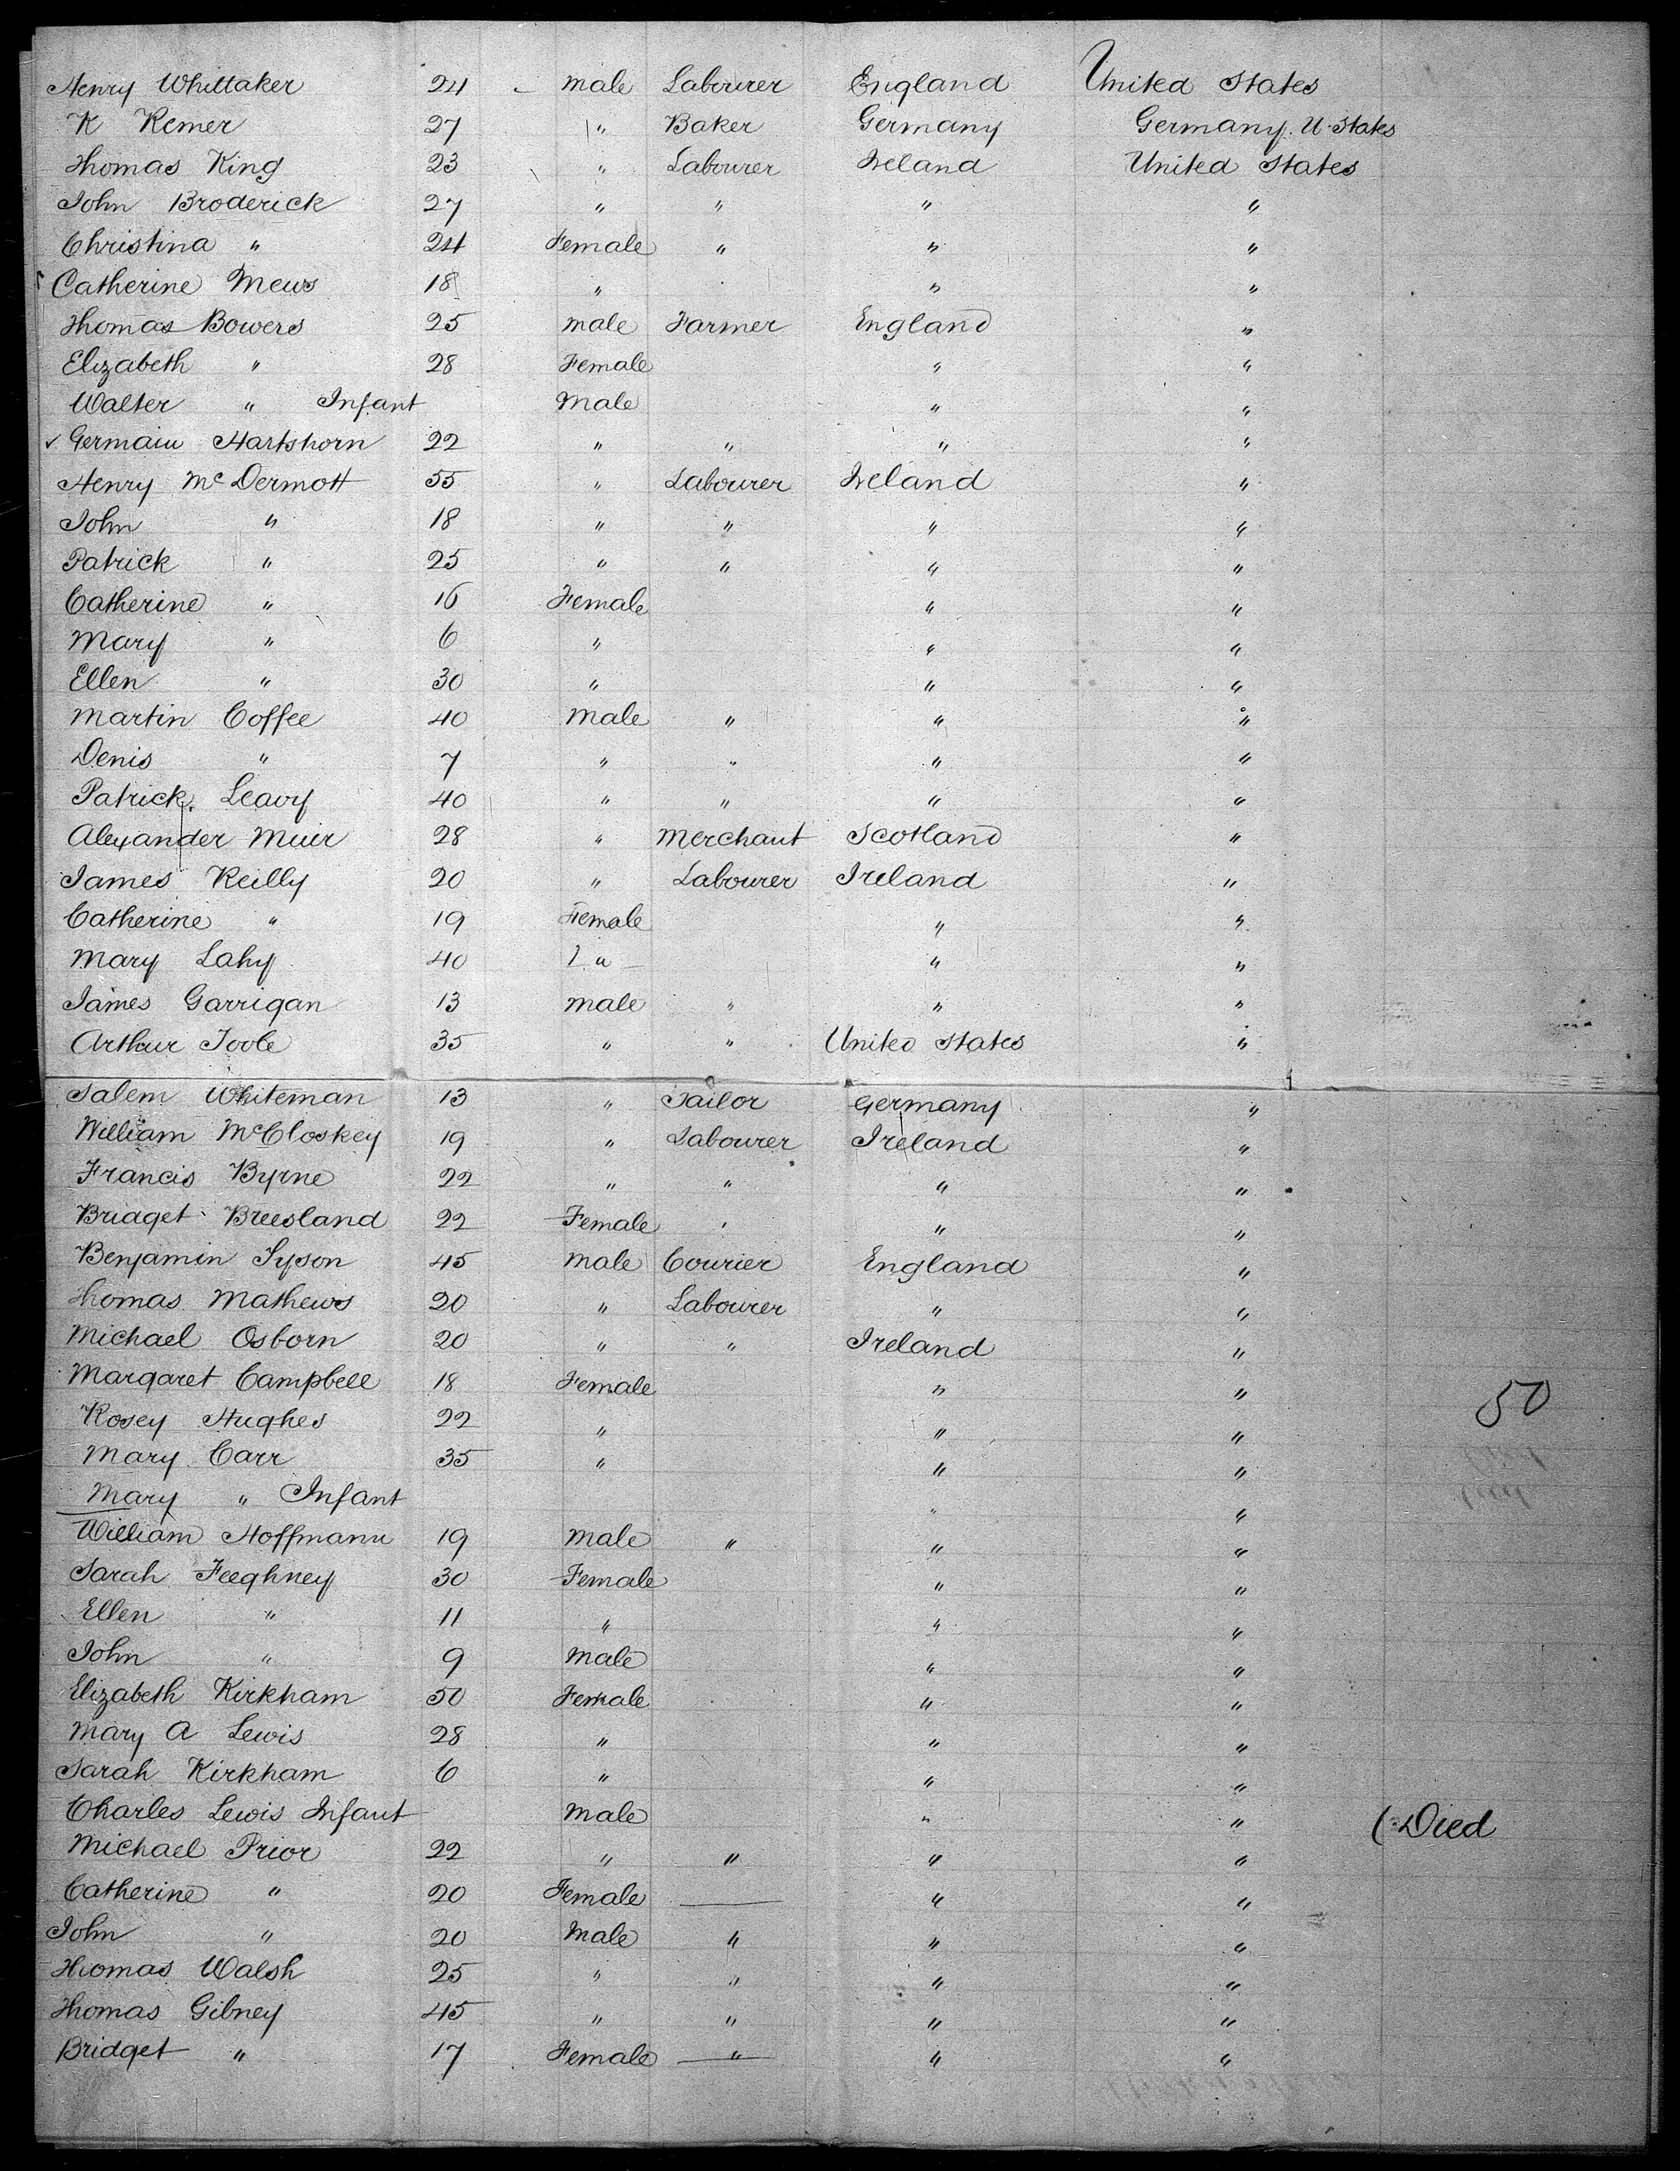 Henry Whittaker 24 male Labourer England United States
K Kemer 27 " Baker Germany Germany. U States
Thomas King 23 " Labourer Ireland United States
John Broderick 27 " " " "
Christina " 24 Female " " "
Catherine Mews 18 " " "
Thomas Bowers 25 male Farmer England "
Elizabeth " 28 Female " "
Walter " Infant Male " "
✓ Germain Hartshorn 22 " " " "
Henry McDermott 55 " Labourer Ireland "
John " 18 " " " "
Patrick " 25 " " " "
Catherine " 16 Female " "
Mary " 6 " " "
Ellen " 30 " " "
Martin Coffee 40 male " " "
Denis " 7 " " " "
Patrick Leavy 40 " " " "
Alexander Muir 28 " Merchant Scotland "
James Reilly 20 " Labourer Ireland "
Catherine " 19 Female " "
Mary Lahy 40 " " "
James Garrigan 13 male " " "
Arthur Toole 35 " " United States "
Salem Whiteman 13 " Tailor Germany "
William McCloskey 19 " Labourer Ireland "
Francis Byrne 22 " " " "
Bridget Breesland 22 Female " " "
Benjamin Tyson 45 male Courier England "
Thomas Mathews 20 " Labourer " "
Michael Osborn 20 " " Ireland "
Margaret Campbell 18 Female " "
Rosey Hughes 22 " " " 50
Mary Carr 35 " " "
Mary " Infant " "
William Hoffmann 19 male " " "
Sarah Feeghney 30 Female " "
Ellen " 11 " " "
John " 9 Male " "
Elizabeth Kirkham 50 Female " "
Mary A Lewis 28 " " "
Sarah Kirkham 6 " " "
Charles Lewis Infant male " " (Died
Michael Prior 22 " " " "
Catherine " 20 Female — " "
John " 20 Male " " "
Thomas Walsh 25 " " " "
Thomas Gibney 45 " " " "
Bridget " 17 Female " " "